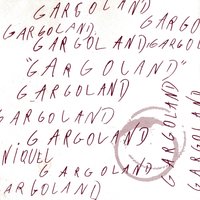 GARGOLAND
GARGOLAND
GARGOLAND
GARGOLAND
GARGOL
"GARGOLAND"
GARGOLAND
GARGOLAND
GARGOLAND
GARGOLAND
NIQUEL
GARGOLAND
GARGOLAND
GARGOLAND
GARGOLAND